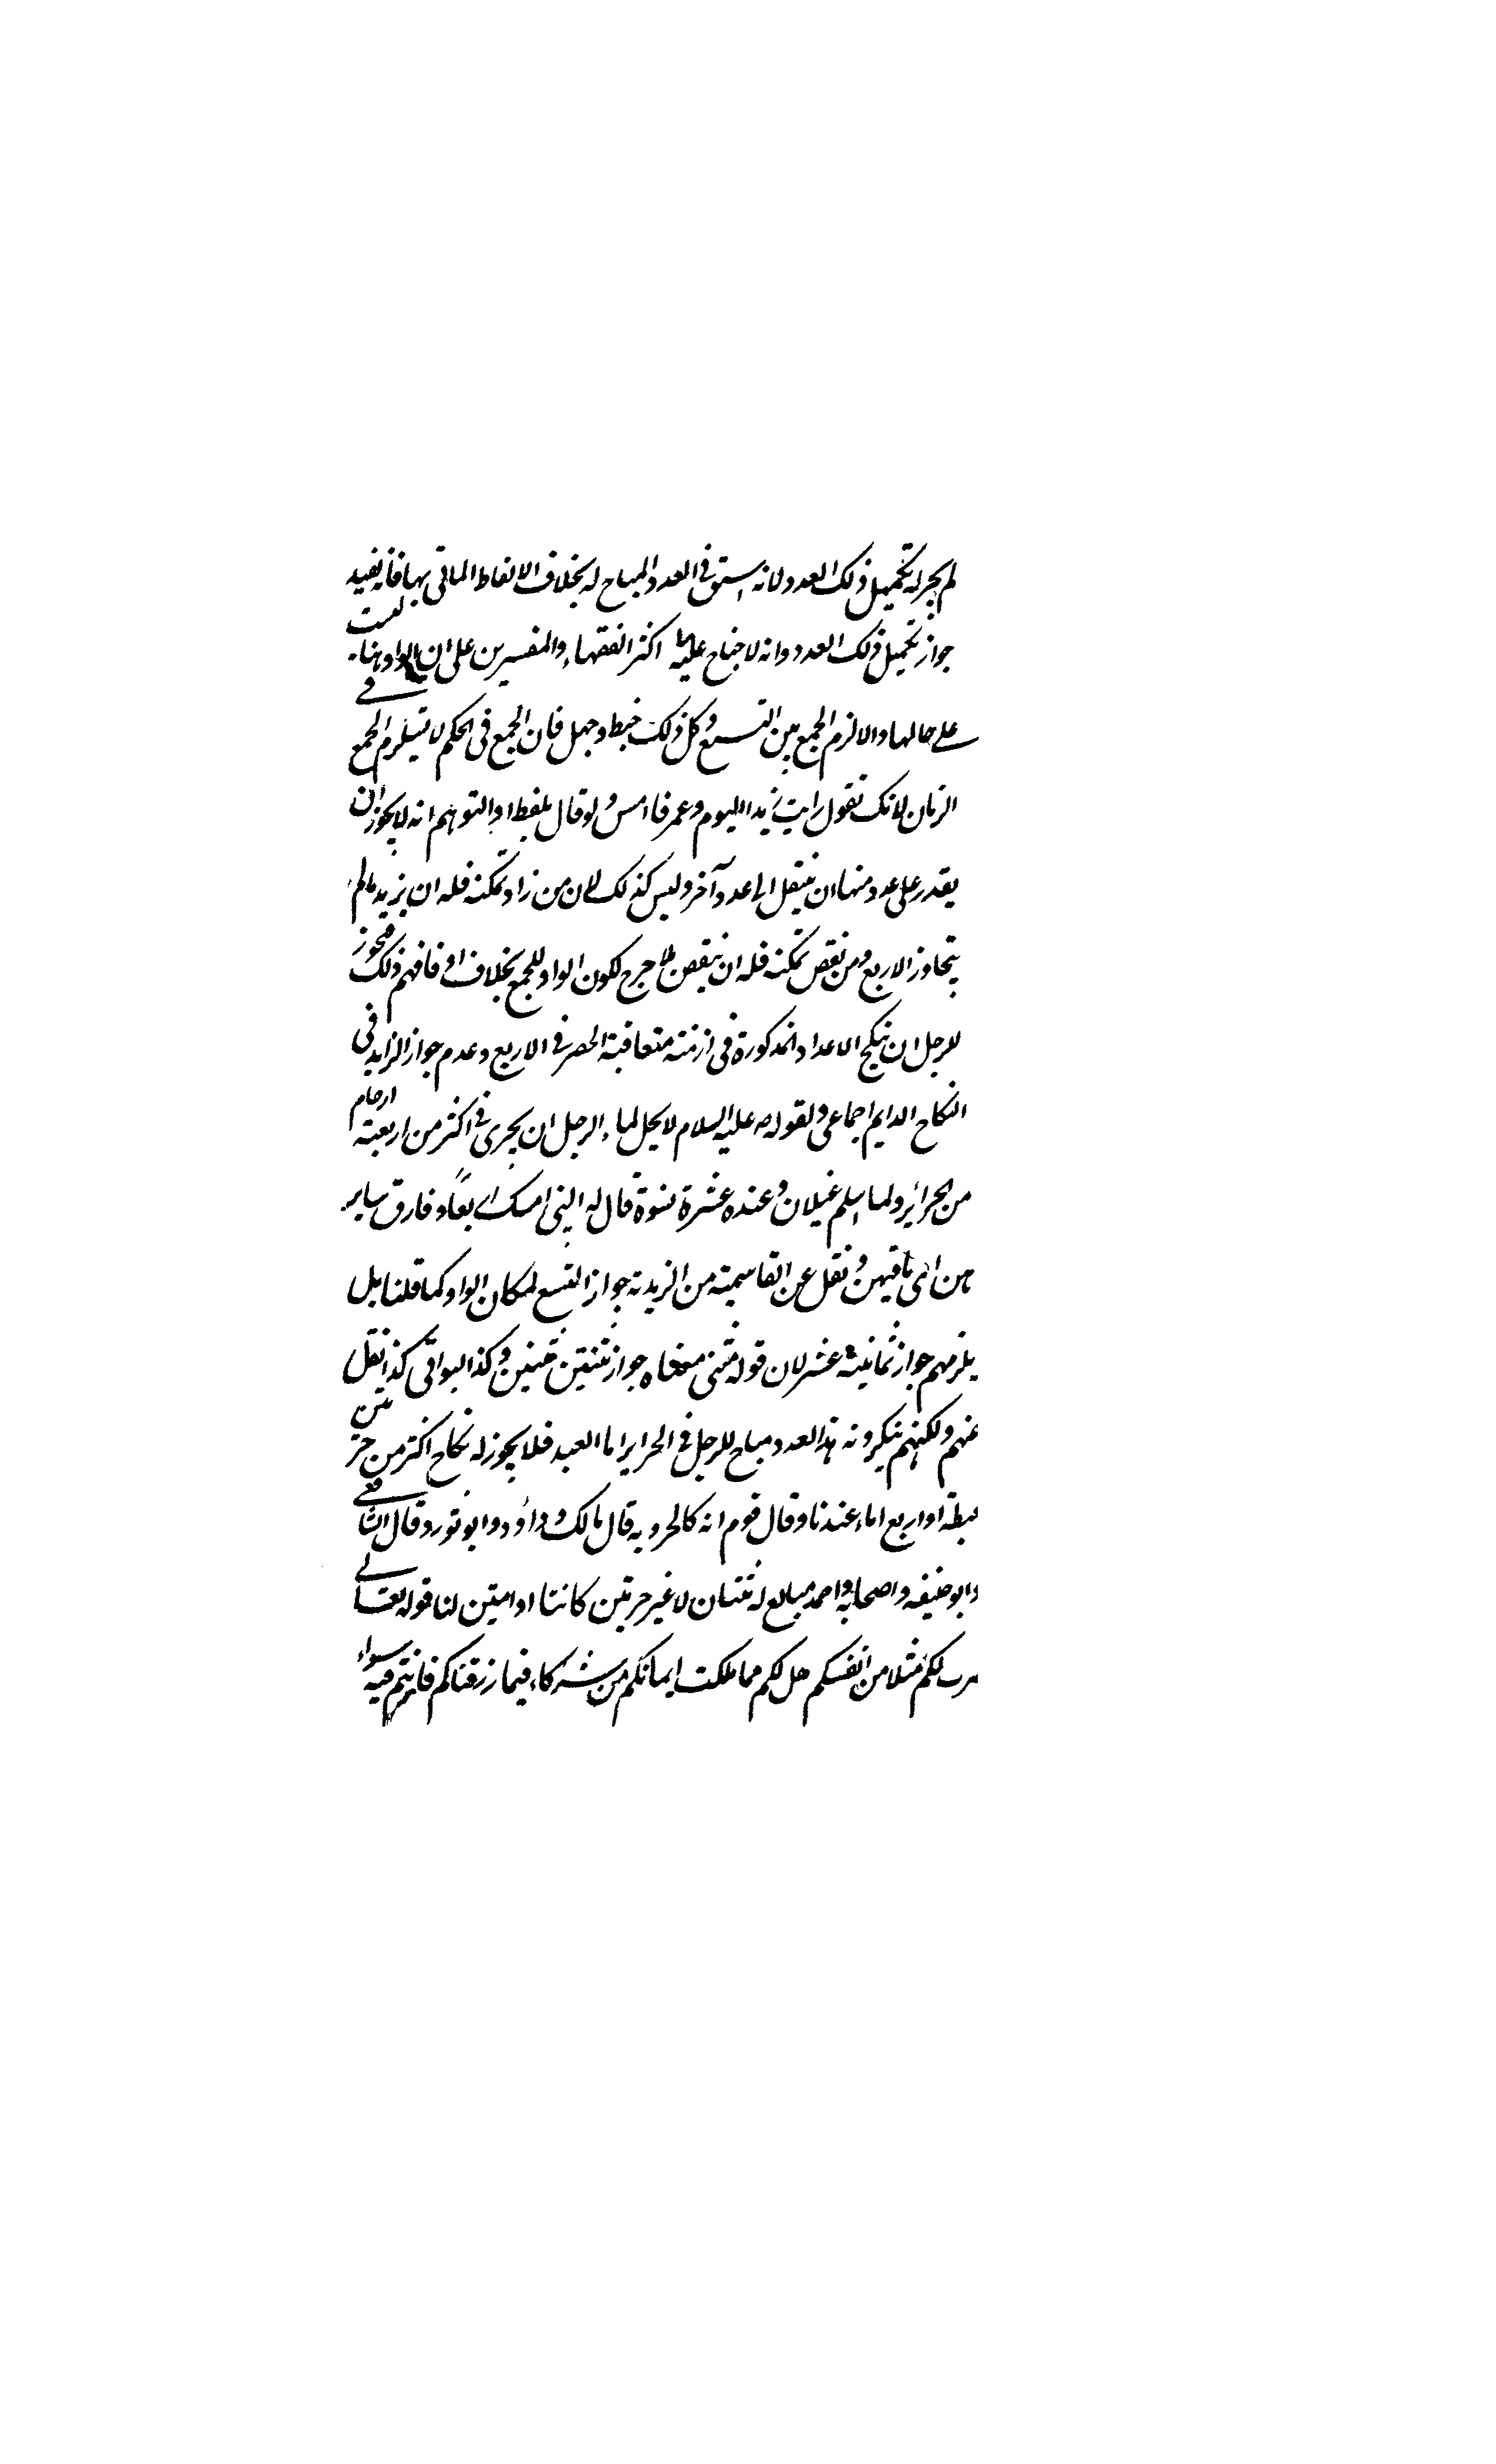 لم يجز له تكميل ذلك العدد لانه استوفى العدد المباح له بخلاف الالفاظ الماتى بها فانه يفيد
جواز تكميل ذلك العدد وانه لا جناح عليه اكثر الفقهاء والمفسرين على ان الواو هنا ليست
على حالها والا لزم الجمع بين التسع وكل ذلك خبط وجهل فان الجمع فى الحكم لا يستلزم الجمع فى
الزمان لانك تقول رايت زيدا اليوم وعمرفا امس ولو قال بلفظ او التوهم انه لا يجوز ان
يقدر على عدد منها ان ينتقل الى عدد آخر وليس كذلك لان من زاد تمكنه فله ان يزيد ما لم
يتجاوز الاربع ومن نقص تمكنه فله ان ينقص فلا حرج لكون الواو للجمع بخلاف او فافهم ذلك فيجوز
للرجل ان ينكح الاعداد المذكورة فى ازمنة متعاقبة الحصر فى الاربع وعدم جواز الزايد فى
النكاح الدايم اجماعى ولقوله عليه السلام لا يحل لماء الرجل ان يجرى فى اكثر من اربعة ارحام
من الحرائر ولما اسلم غيلان وعنده عشرة نسوة قال له النبى امسك اربعًا وفارق ساير
هن اى باقيهن ونقل عن القاسمية من الزيدية جواز التسع لمكان الواو كما قلنا بل
يلزمهم جواز ثمانية عشر لان قوله مثنى معناه جواز ثنتين ثنتين وكذا البواقى كذا نقل
عنهم ولكنهم ينكرونه هذا العدد مباح للرجل فى الحراير اما العبد فلا يجوز له نكاح اكثر من حرتين
او اربع اماء عندنا وقال قوم انه كالحر وبه قال مالك وداؤد وابو ثور وقال الشافعى
وابو حنيفه واصحابه واحمد مباح له ثنتان لا غير حرتين كانتا او امتين لنا قوله تعالى
ضرب لكم مثلا من انفسكم هل لكم مما ملكت ايمانكم من شركاء فيما رزقناكم فانتم فيه سواء